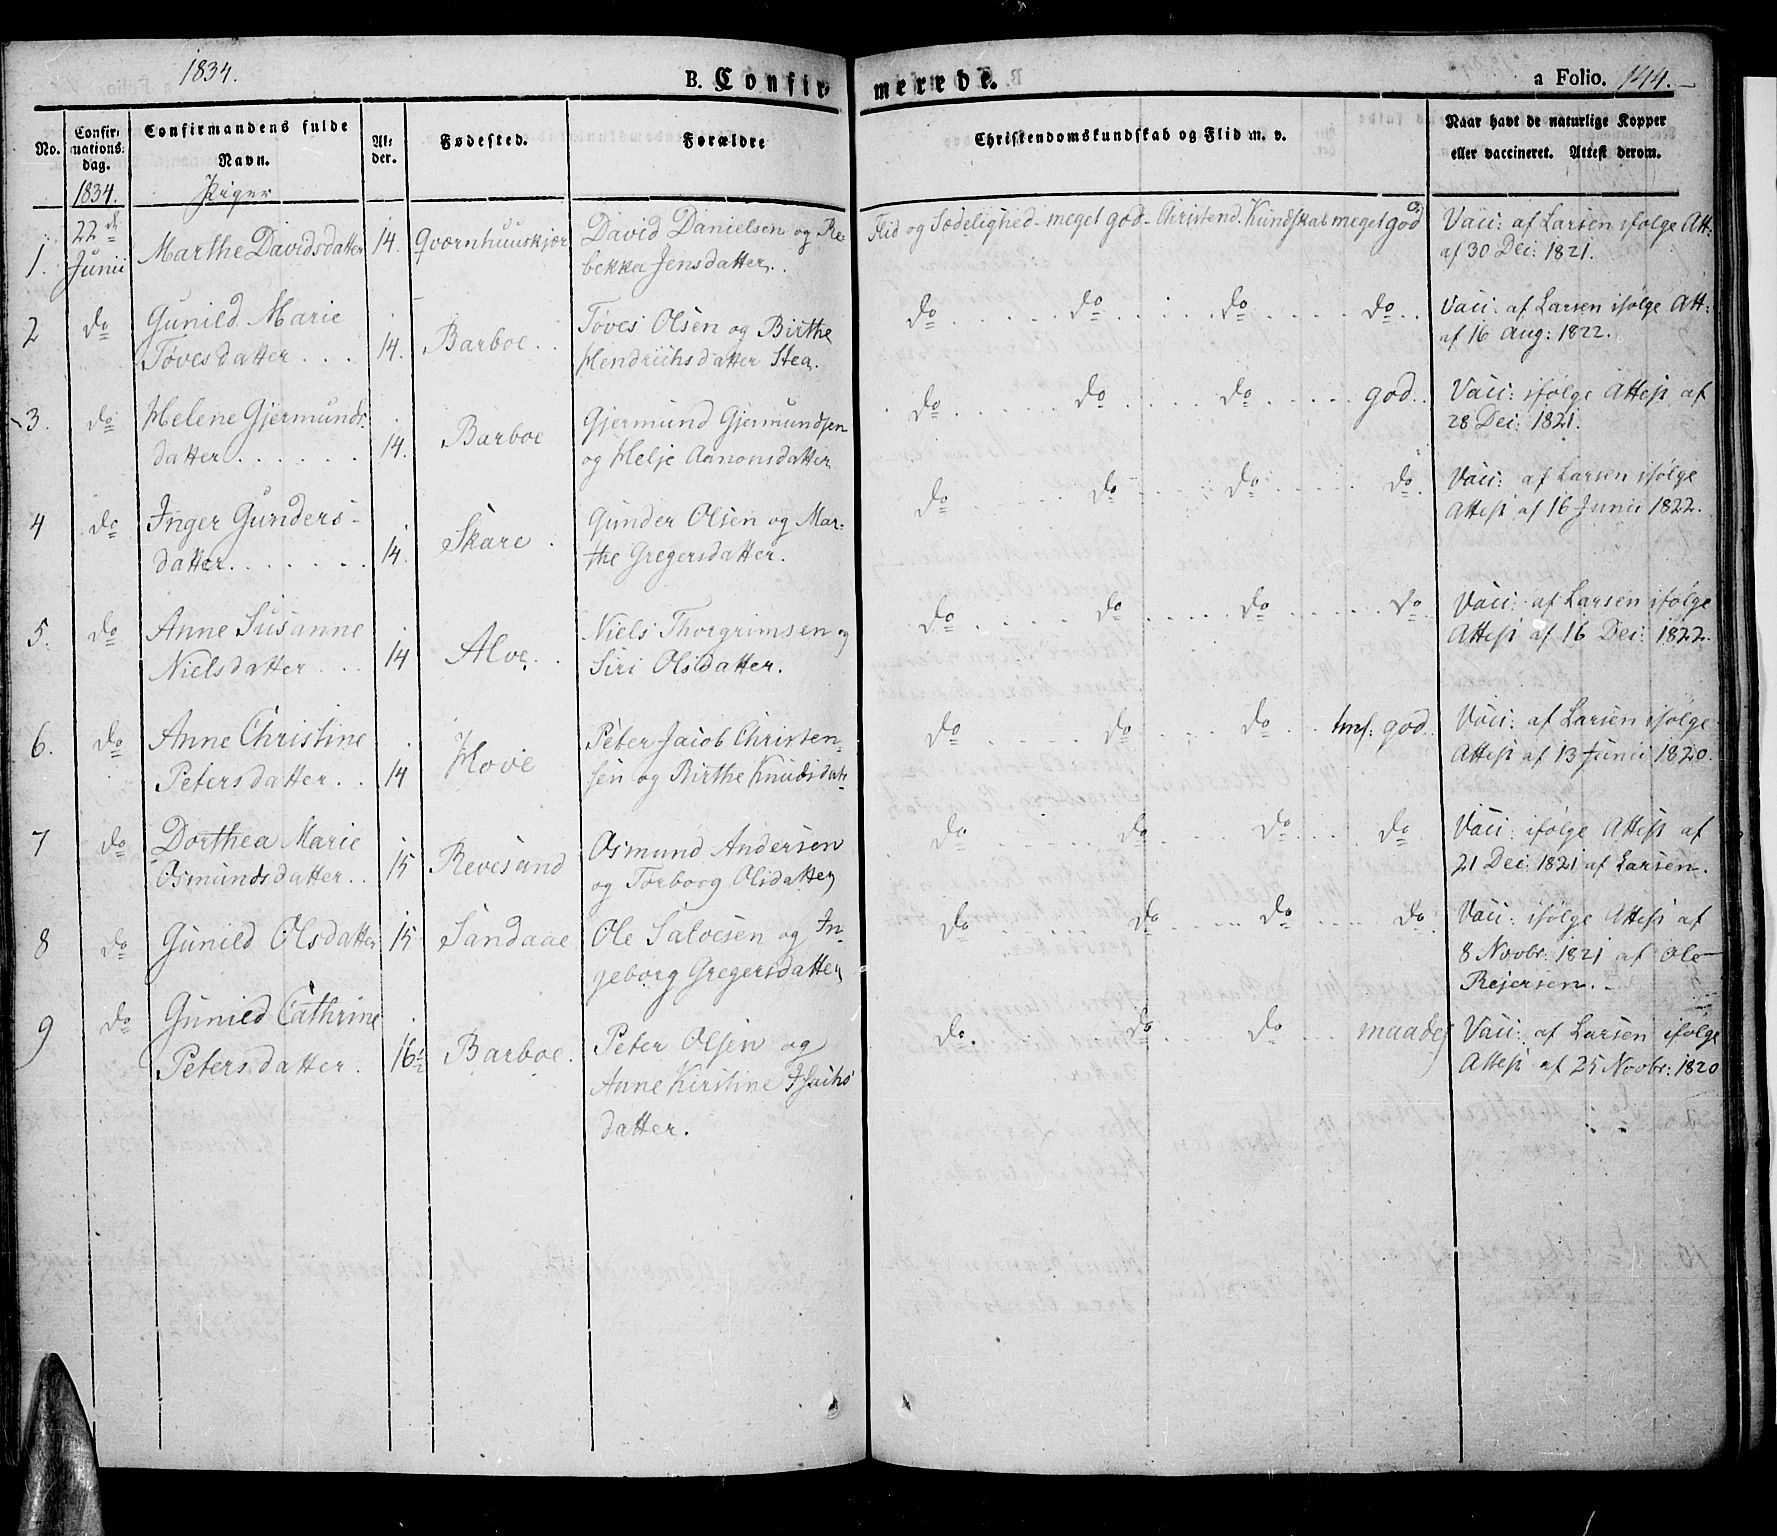 1834.
B. Confir-
merede.
a Folio. 144.
No.
Confir-
mations-
dag.
Confirmandens fulde
Navn.
Al-
der.
Fødested.
Forældre
Christendomskundskab og Flid m. v.
Naar havt de naturlige Kopper
eller vaccineret. Attest derom.
1834.
Piger
1.
22de
Junii
Marthe Davidsdatter
14.
Qværnhuuskjær
David Danielsen og Re-
bekka Jensdatter.
Flid og Sædelighed - meget god - Christend. Kundskab meget god
Vacc: af Larsen ifølge Att:
af 30 Dec: 1821.
2
do
Gunild Marie
Tøvesdatter . . .
14.
Barboe . .
Tøves Olsen og Birthe
Hendrichsdatter Stea.
do . . . . . do . . . . do . . . . do . .
Vacc: af Larsen ifølge Att:
af 16 Aug: 1822.
3.
do
Helene Gjermunds-
datter . . . . . .
14.
Barboe
Gjermund Gjermundsen
og Helje Aanonsdatter
do . . . . . do . . . . do . . . . god .
Vacc: ifølge Attest af
28 Dec: 1821.
4
do
Inger Gunders-
datter . . . . . . .
14.
Skare .
Gunder Olsen og Mar-
the Gregersdatter.
do . . . . do . . . . do . . . . do .
Vacc: af Larsen ifølge
Attest af 16 Junii 1822.
5.
do
Anne Susanne
Nielsdatter . . .
14
Alve . .
Niels Thorgrimsen og
Siri Olsdatter.
do . . . . . do . . . . do . . . . do
Vacc: af Larsen ifølge
Attest af 16 Dec: 1822.
6.
do
Anne Christine
Petersdatter . .
14
Hove
Peter Jacob Christen-
sen og Birthe Knudsdat-
do . . . . . do . . . . do . . tml. god
Vacc: af Larsen ifølge
Attest af 13 Junii 1820.
7
do
Dorthea Marie
Osmundsdatter . .
15
Revesund
Osmund Andersen
og Torborg Olsdatter
do . . . . . do . . . . do . . . . do
Vacc: ifølge Attest af
21 Dec: 1821 af Larsen.
8
do
Gunild Olsdatter
15
Sandaae
Ole Salvesen og In-
geborg Gregersdatter
do . . . . . do . . . . do . . . . do .
Vacc: ifølge Attest af
8 Novbr: 1821 af Ole
Reiersen. -
9
do
Gunild Cathrine
Petersdatter .
16½
Barboe .
Peter Olsen og
Anne Kirstine Isachs
datter.
do . . . . . do . . . . do . . . . maadel
Vacc: af Larsen ifølge
Attest af 25 Novbr: 1820